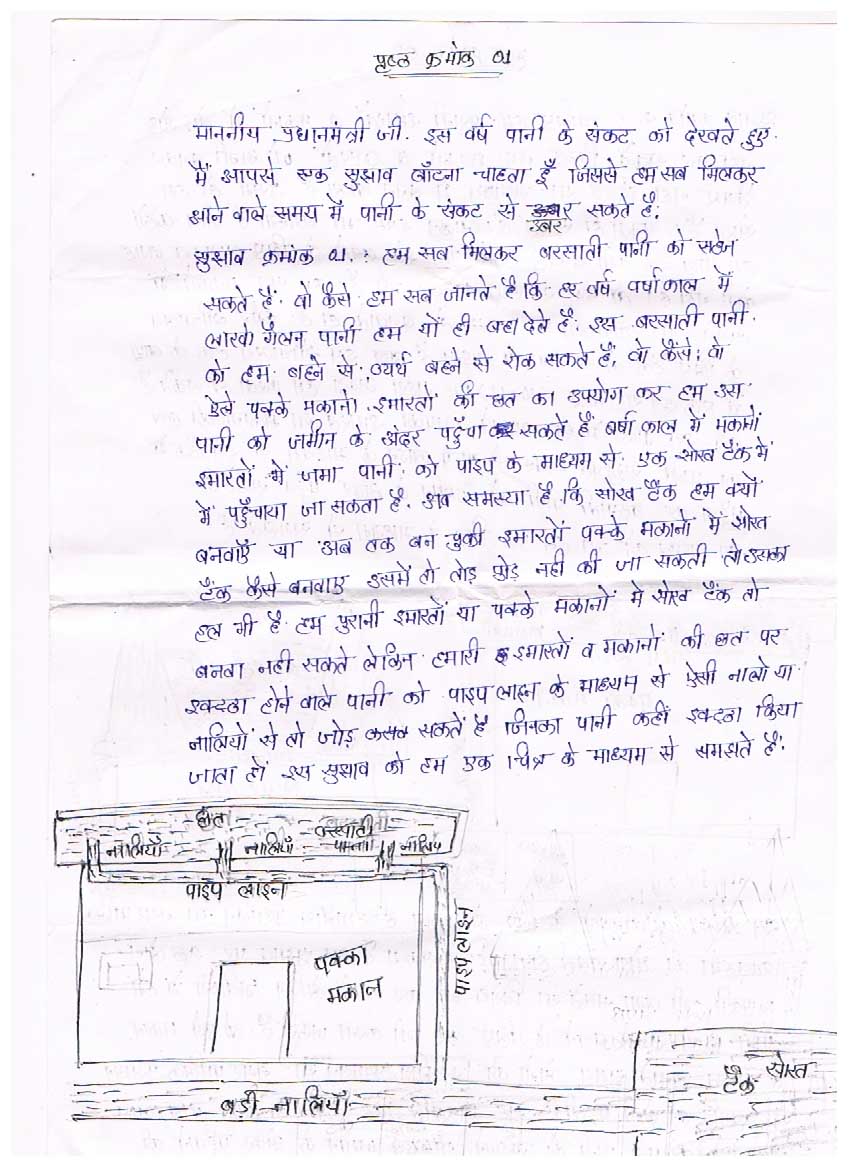 पृष्ठ क्रमांक 01
माननीय प्रधानमंत्री जी. इस वर्ष पानी के संकट को देखते हुए.
मैं आपसे एक सुझाव बाँटना चाहता हूँ जिससे हम सब मिलकर
आने वाले समय में पानी के संकट से उबर सकते है.
सुझाव क्रमांक 01. : हम सब मिलकर बरसाती पानी को सहेज
सकते है. वो कैसे हम सब जानते है कि हर वर्ष वर्षाकाल में
लाखो गैलन पानी हम यों ही बहा देते है. इस बरसाती पानी
को हम बहने से व्यर्थ बहने से रोक सकते है, वो कैसे; वो
ऐसे पक्के मकानो इमारतो की छत का उपयोग कर हम उस
पानी को जमीन के अंदर पहुँचा कर सकते है वर्षा काल में मकानों
इमारतों में जमा पानी को पाइप के माध्यम से एक सोख टैंक में
में पहुँचाया जा सकता है. अब समस्या है कि सोख टैंक हम क्यों
बनवाएँ या अब तक बन चुकी इमारतों पक्के मकानो में सोख
टैंक कैसे बनवाए उसमें तो तोड़ फोड़ नही की जा सकती तो उसका
हल भी है हम पुरानी इमारतों या पक्के मकानों में सोख टैंक तो
बनवा नही सकते लेकिन हमारी इमारतों व मकानों की छत पर
इकट्ठा होने वाले पानी को पाइप लाइन के माध्यम से ऐसी नालो या
नालियों से तो जोड़ सकते है जिनका पानी कहीं इकट्ठा किया
जाता हो इस सुझाव को हम एक चित्र के माध्यम से समझते है.
छत
बरसाती
नालियाँ नालियाँ पानी नालियाँ
पाइप लाइन
पाइप लाइन
पक्का
मकान
सोख
टैंक
बड़ी नालियाँ